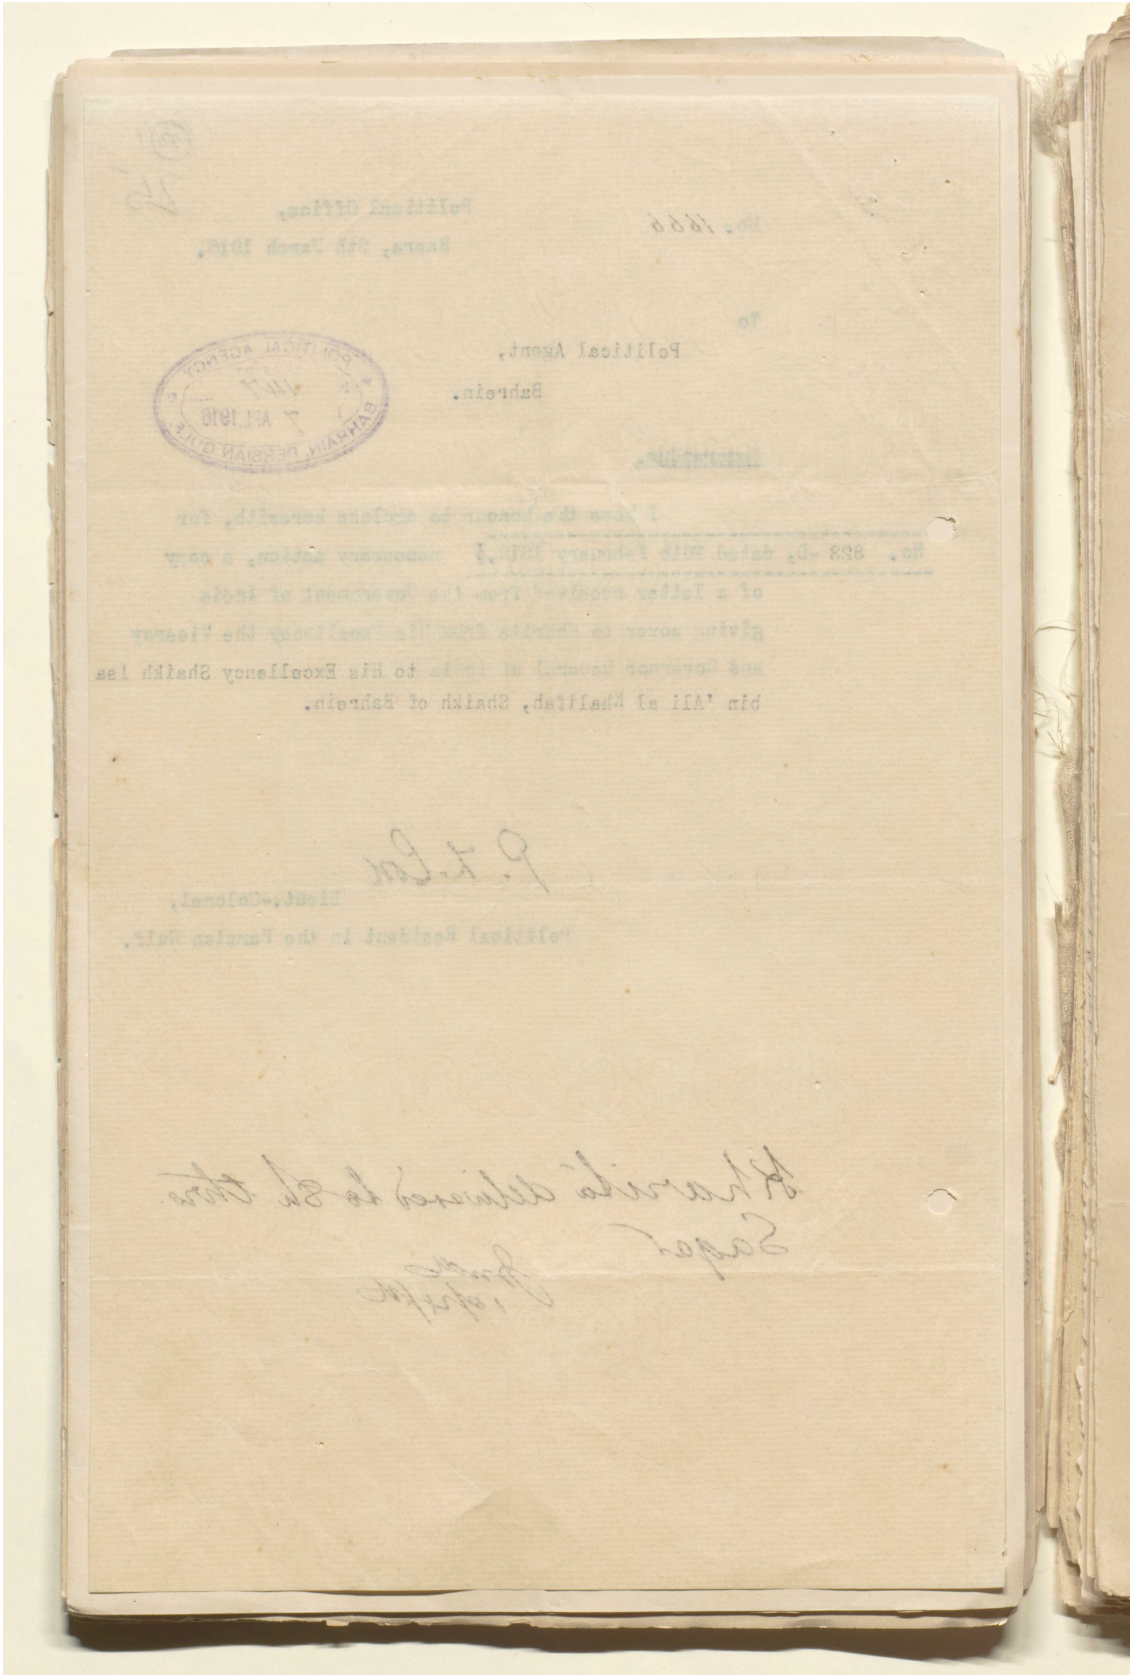 25
No. 1666
Political Office,
Basra, 9th March 1916.
To
Political Agent,
Bahrein.
POLITICAL AGENCY
447
7 APL.1916
BAHRAIN, PERSIAN GULF.
Memorandum.
I have the honour to enclose herewith, for
No. 823 -D, dated February 1916. necessary action, a copy
of a letter received from the Government of India
giving cover to Kharita from His Excellency the Viceroy
and Governor General of India to His Excellency Shaikh Isa
bin 'Ali al Khalifah, Shaikh of Bahrein.
P. Z. Cox
Lieut.-Colonel,
Political Resident in the Persian Gulf.
Kharita delivered to Sh. thro